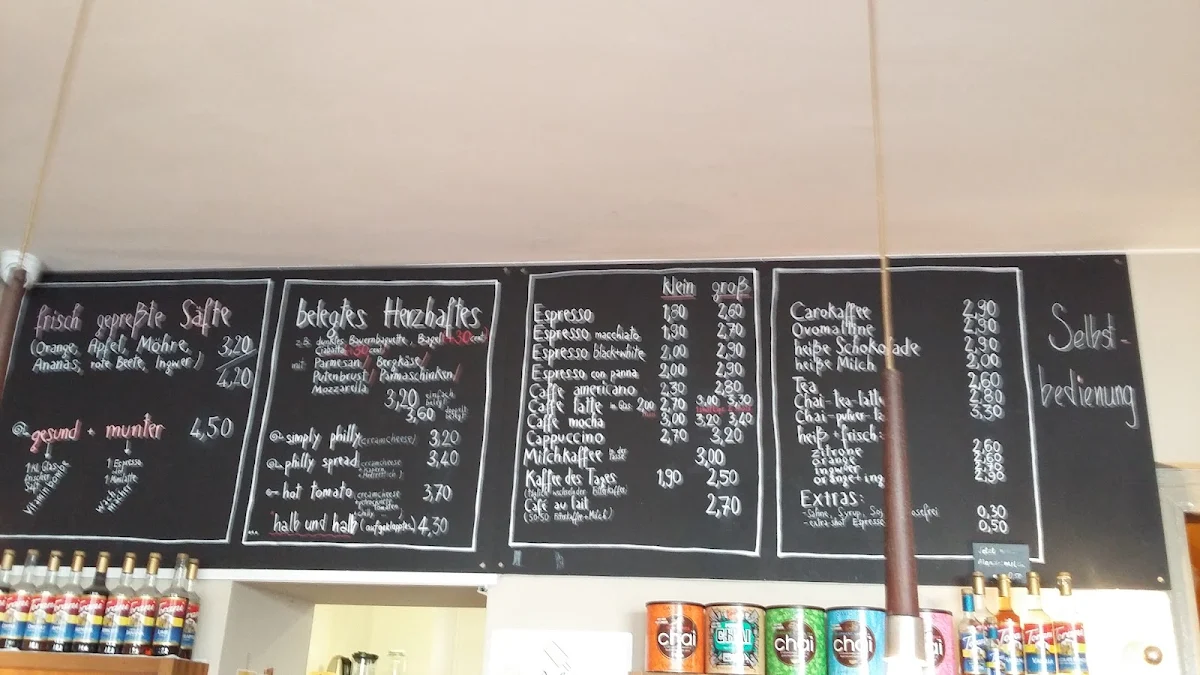 frisch gepreßte Säfte
(Orange, Apfel, Möhre, 3,20
Ananas, rote Beete, Ingwer) 4,20
gesund + munter 4,50
1 Espresso
belegtes Herzhaftes
z.B. dunkles Bayernbaguette, Bagel
Ciabatta
mit Parmesan / Bergkäse /
Putenbrust / Parmaschinken /
Mozzarella
3,20 einfach belegt
3,60 doppelt belegt
simply philly (creamcheese) 3,20
philly spread creamcheese 3,40
hot tomato creamcheese 3,70
... halb und halb (aufgeklapptes) 4,30
klein groß
Espresso 1,80 2,60
Espresso macchiato 1,90 2,70
Espresso black+white 2,00 2,90
Espresso con panna 2,00 2,90
Caffè americano 2,30 2,80
Caffè latte im Glas 2,00 2,70 3,00 3,30
Caffè mocha 3,00 3,20 3,40
Cappuccino 2,70 3,20
Milchkaffee 3,00
Kaffee des Tages 1,90 2,50
(täglich wechselnder Filterkaffee)
Café au lait 2,70
(50:50 Filterkaffee+Milch)
Carokaffee 2,90
Ovomaltine 2,90
heiße Schokolade 2,90
heiße Milch 2,00
Tea 2,60
Chai-tea-latte 2,80
Chai-pulver 3,30
heiß+frisch:
zitrone 2,60
orange
ingwer
orange+ing 2,90
Extras:
-Sahne, Syrup, 0,30
-extra shot Espresso 0,50
Selbst-
bedienung
Torani
chai
CHAI
chai
chai
chai
Torani